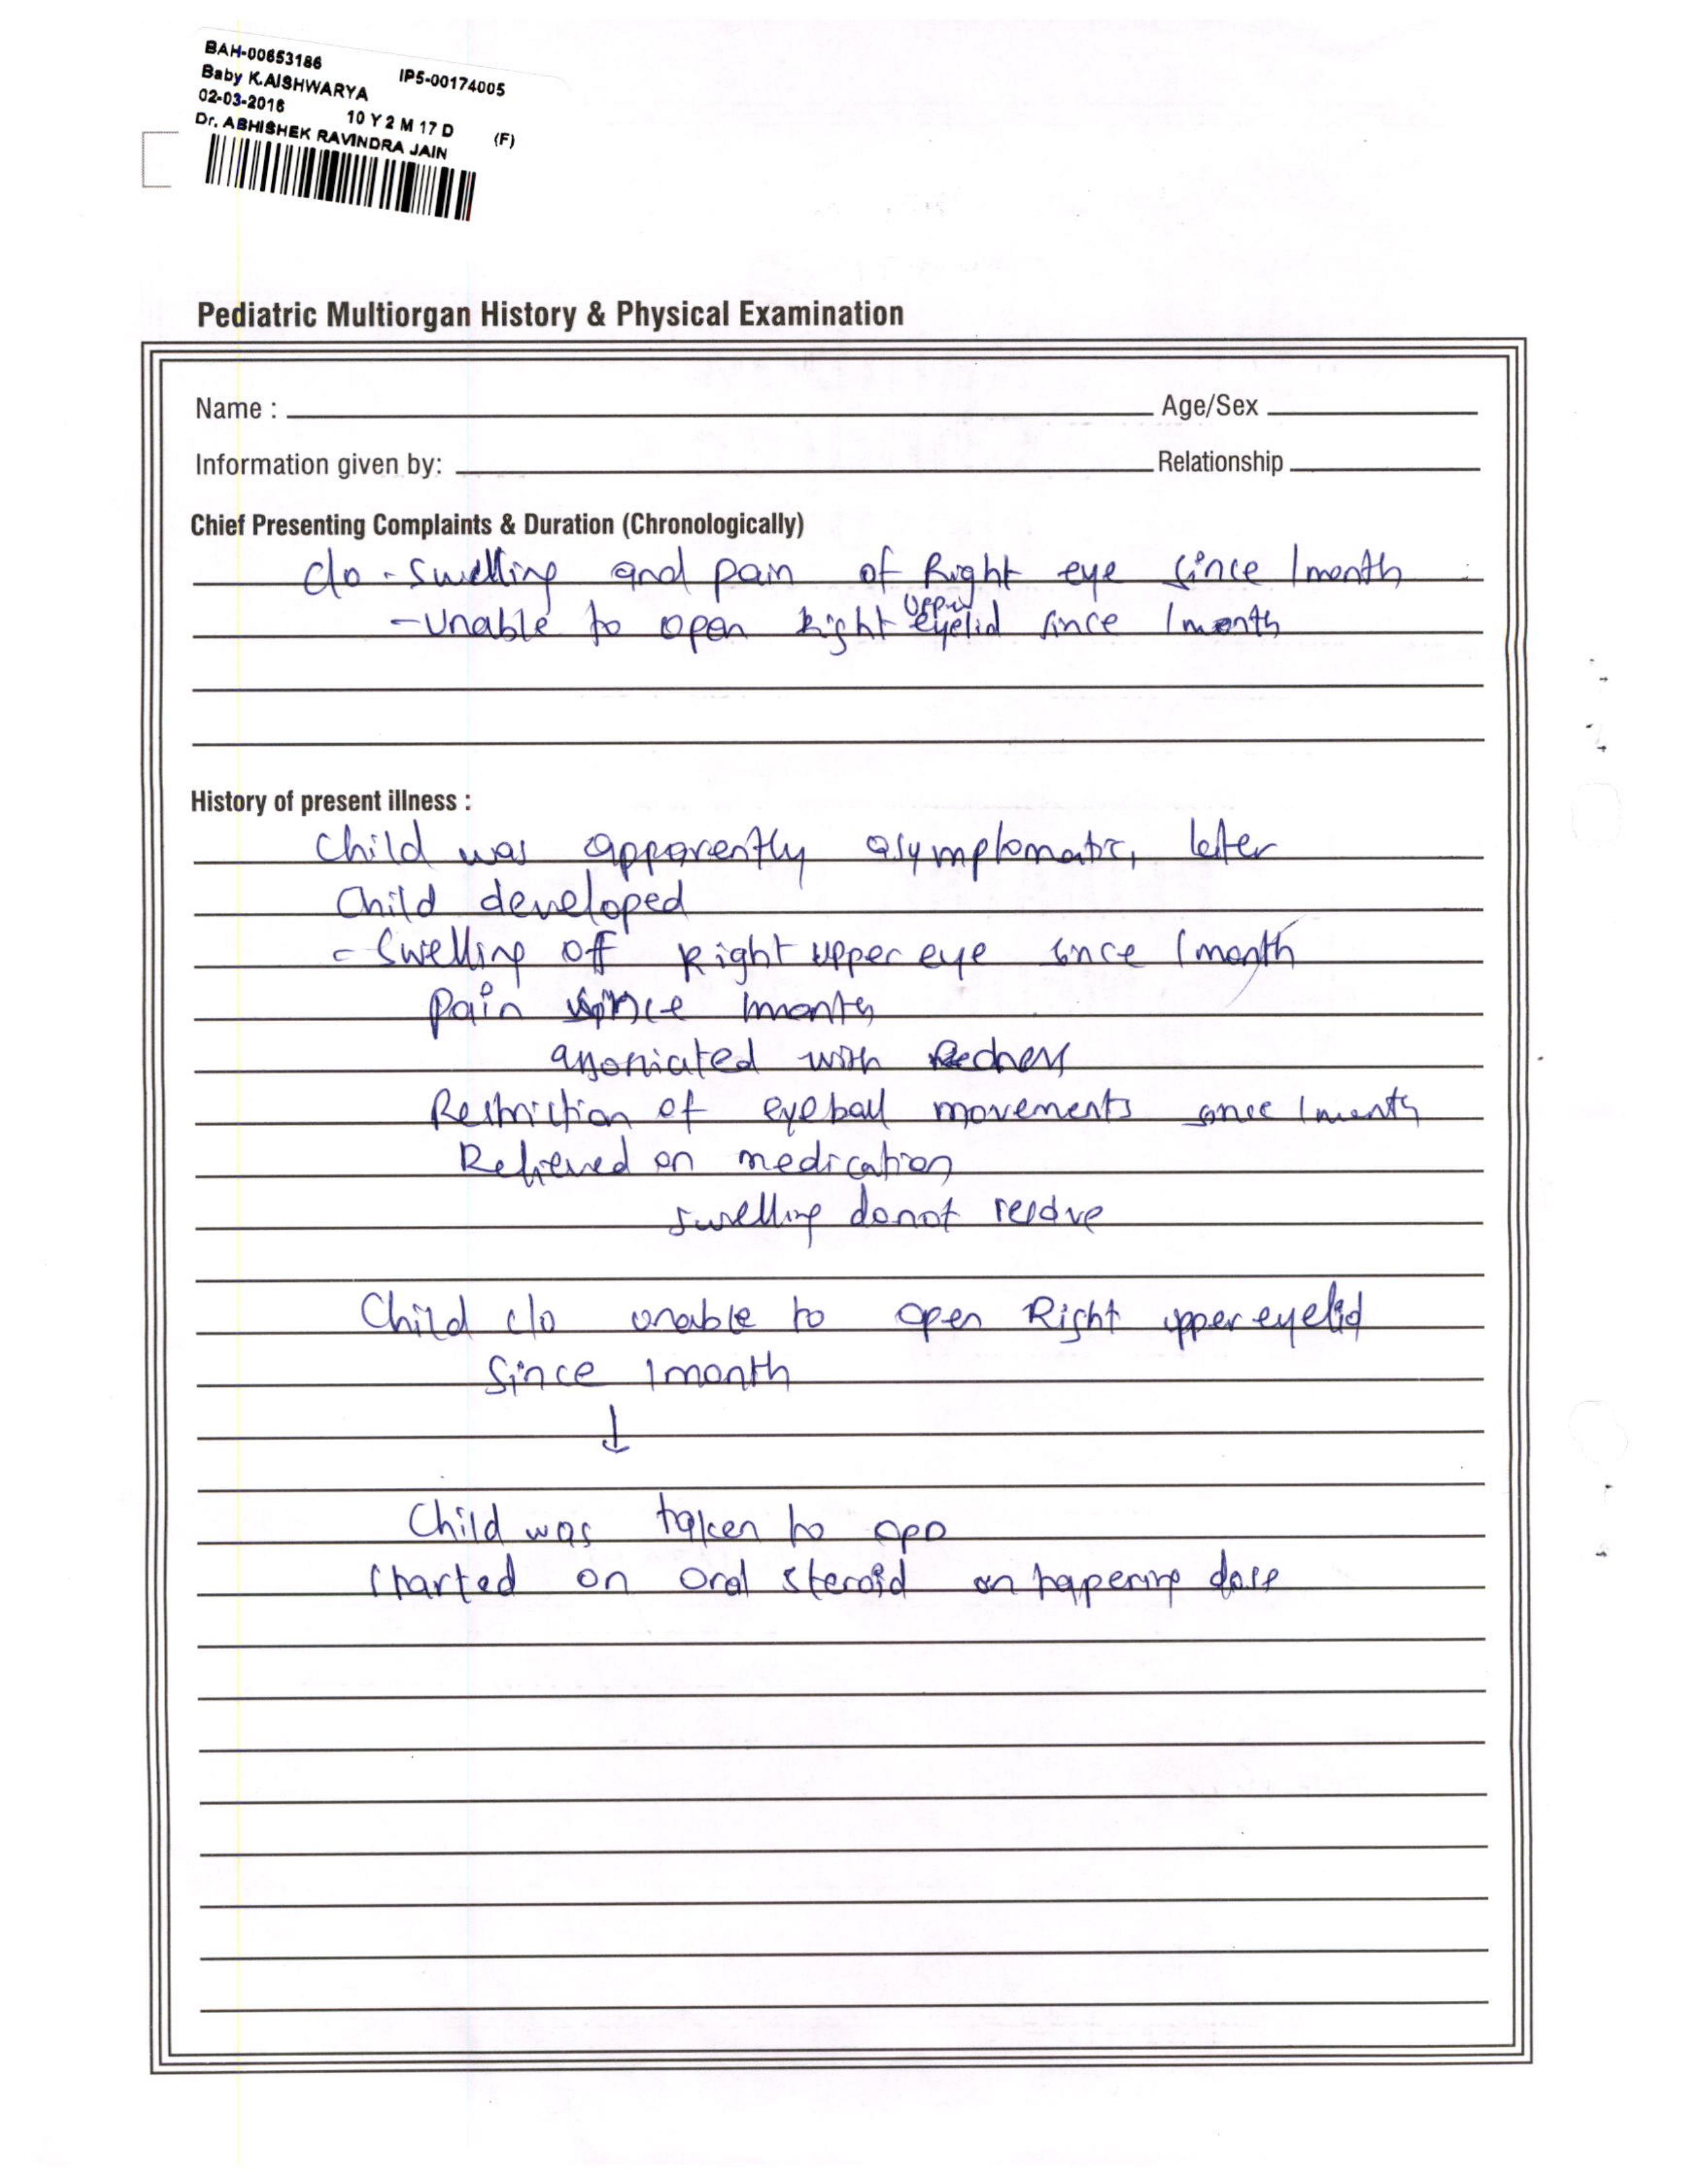 BAH-00653186 IP5-00174005
Baby K.AISHWARYA
02-03-2016 10 Y 2 M 17 D (F)
Dr. ABHISHEK RAVINDRA JAIN
Pediatric Multiorgan History & Physical Examination
Name : Age/Sex
Information given by: Relationship
Chief Presenting Complaints & Duration (Chronologically)
c/o - swelling and pain of Right eye since 1month
- Unable to open Right upper eyelid since 1month
History of present illness :
Child was apparently asymptomatic, later
Child developed
- Swelling off Right upper eye since 1month
Pain since 1month
associated with Redness
Restriction of eyeball movements since 1month
Relieved on medication
swelling donot resolve
Child c/o unable to open Right upper eyelid
Since 1month
↓
Child was taken to OPD
started on oral steroid on tapering dose